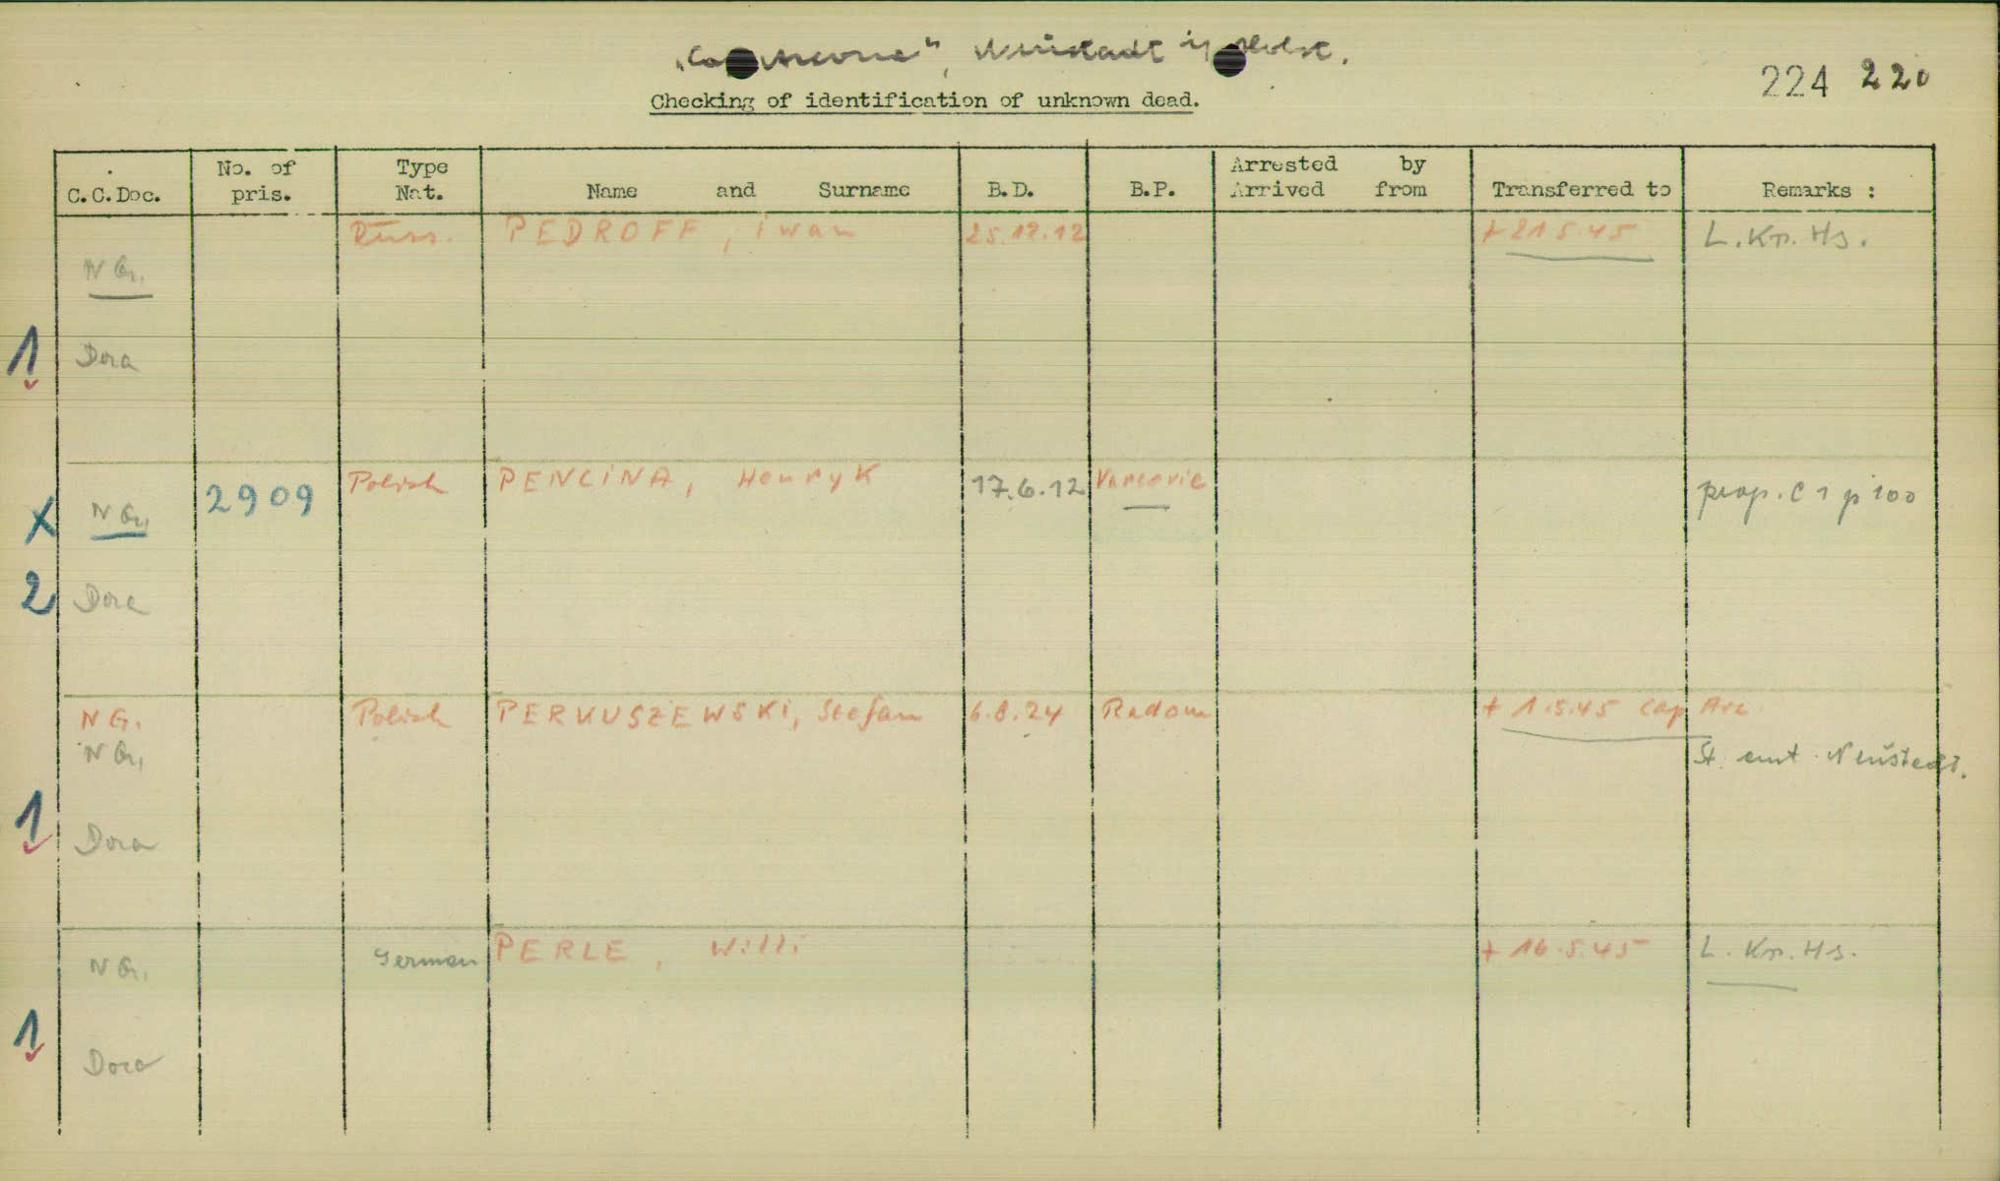 "Cap Arcona", Neustadt i. Holst.
224 220
Checking of identification of unknown dead.
C.C.Doc. No. of pris. Type Nat. Name and Surname B.D. B.P. Arrested by Arrived from Transferred to Remarks :
Russ. PEDROFF, iwan 25.12.12 + 21.5.45 L.Kr.Hs.
N G.
1 Dora
X N G. 2909 Polish PENCINA, Henryk 17.6.12 Varsovie prop. C 1 p 100
2 Dora
N G. Polish PERKUSZEWSKI, Stefan 6.8.24 Radom + 1.5.45 Cap Arc.
N G. St. amt. Neustadt.
1 Dora
N G. German PERLE, Willi + 16.5.45 L.Kr.Hs.
1 Dora